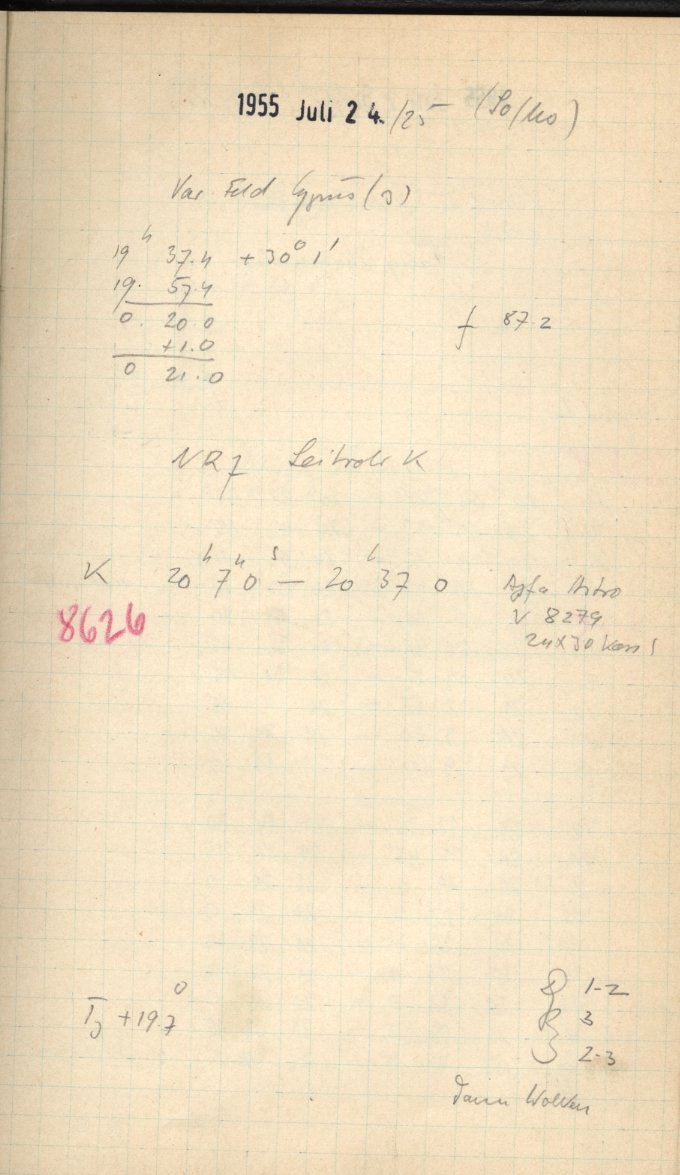 1955 Juli 24./25 (So/Mo)
Var. Feld Cygnus (3)
19 h 37.4 + 30° 1'
19. 57.4
0. 20.0
+1.0
0 21.0
f 87.2
NR 7 Leitrohr K
K 20 h 7 m 0 s — 20 h 37 0
Agfa Astro
8626
V 8279
24x30 Kass 1
T +19.7°
1-2
3
2-3
Dann Wolken